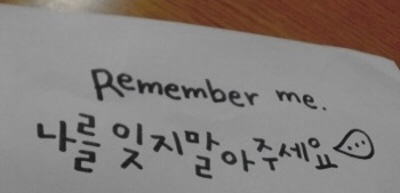 Remember me.
나를 잊지말아주세요...